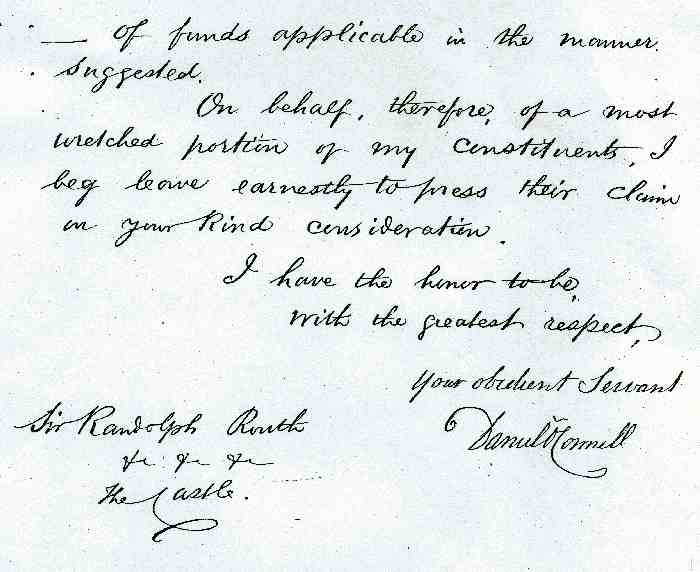 — of funds applicable in the manner
suggested.
On behalf, therefore, of a most
wretched portion of my Constituents, I
beg leave earnestly to press their claim
on your kind consideration.
I have the honor to be,
with the greatest respect,
Your obedient Servant
Daniel O'Connell
Sir Randolph Routh
&c &c &c
The Castle.